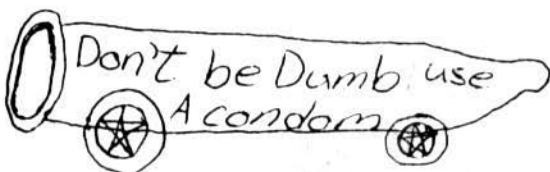 Don't be Dumb use
A condom